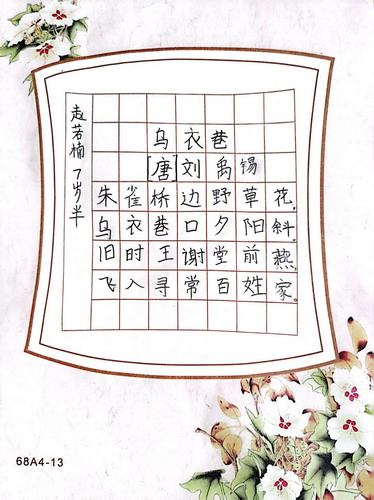 乌衣巷
[唐]刘禹锡
朱雀桥边野草花。
乌衣巷口夕阳斜。
旧时王谢堂前燕。
飞入寻常百姓家。
赵若楠 7岁半
68A4-13